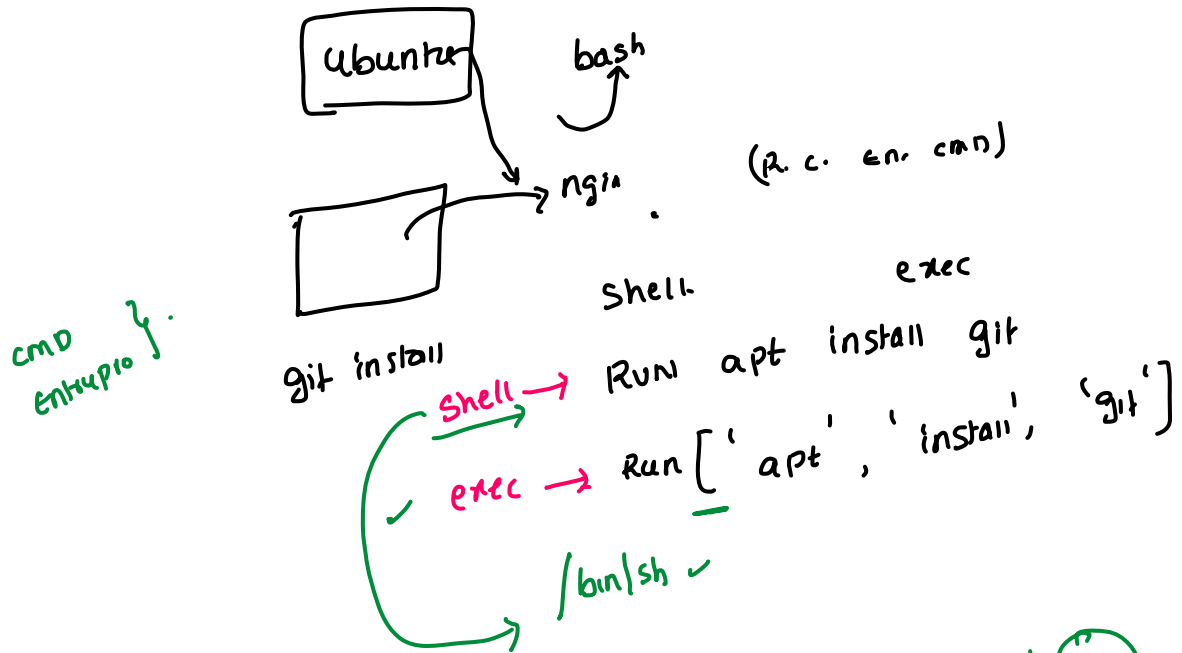 ubuntu
bash
ngin
(R. c. En. cmD)
Shell
exec
cmD
Entrypro
git install
Shell → RUN apt install git
exec → Run ['apt', 'install', 'git']
/bin/sh